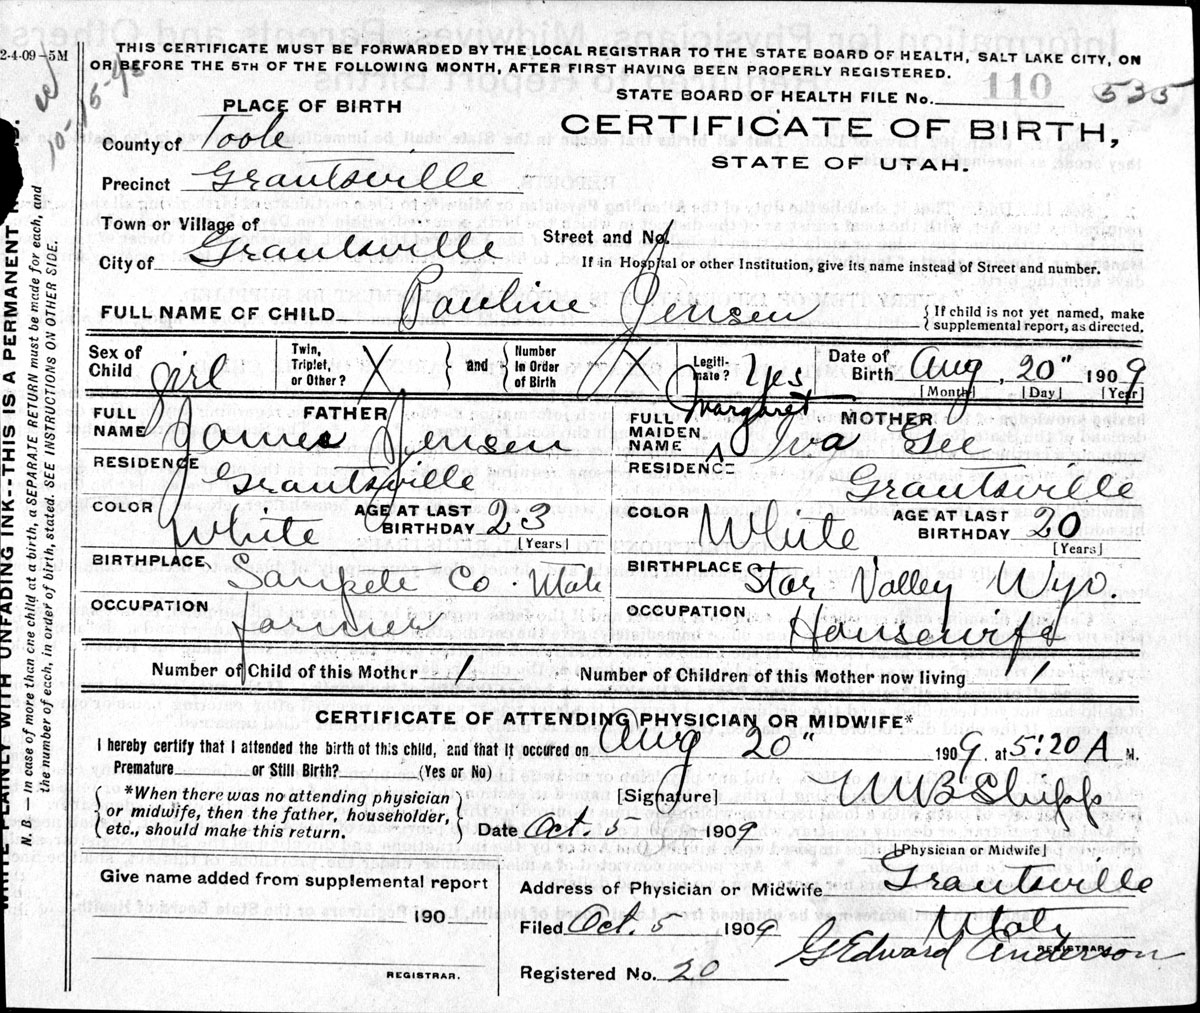 2-4-09-5M
THIS CERTIFICATE MUST BE FORWARDED BY THE LOCAL REGISTRAR TO THE STATE BOARD OF HEALTH, SALT LAKE CITY, ON
OR BEFORE THE 5TH OF THE FOLLOWING MONTH, AFTER FIRST HAVING BEEN PROPERLY REGISTERED.
STATE BOARD OF HEALTH FILE No. 110 535
PLACE OF BIRTH
CERTIFICATE OF BIRTH,
STATE OF UTAH.
County of Tooele
Precinct Grantsville
Town or Village of
City of Grantsville
Street and No.
If in Hospital or other Institution, give its name instead of Street and number.
FULL NAME OF CHILD Pauline Jensen
{If child is not yet named, make
supplemental report, as directed.
Sex of Child girl
Twin, Triplet, or Other? X
and
Number in Order of Birth X
Legiti-mate? Yes
Date of Birth Aug, 20" 1909
[Month] [Day] [Year]
FATHER
FULL NAME James Jensen
RESIDENCE Grantsville
COLOR White
AGE AT LAST BIRTHDAY 23
[Years]
BIRTHPLACE Sanpete Co. Utah
OCCUPATION farmer
MOTHER
FULL MAIDEN NAME Margaret Iva Gee
RESIDENCE Grantsville
COLOR White
AGE AT LAST BIRTHDAY 20
[Years]
BIRTHPLACE Star Valley Wyo.
OCCUPATION Housewife
Number of Child of this Mother 1
Number of Children of this Mother now living 1
CERTIFICATE OF ATTENDING PHYSICIAN OR MIDWIFE*
I hereby certify that I attended the birth of this child, and that it occured on Aug 20" 1909, at 5:20 A M.
Premature or Still Birth? (Yes or No)
*When there was no attending physician
or midwife, then the father, householder,
etc., should make this return.
[Signature]
Date Oct. 5 1909
[Physician or Midwife]
Give name added from supplemental report
190
REGISTRAR.
Address of Physician or Midwife Grantsville
Utah
Filed Oct. 5 1909
G Edward Anderson
REGISTRAR.
Registered No. 20
WRITE PLAINLY WITH UNFADING INK--THIS IS A PERMANENT
N. B.—In case of more than one child at a birth, a SEPARATE RETURN must be made for each, and
the number of each, in order of birth, stated. SEE INSTRUCTIONS ON OTHER SIDE.